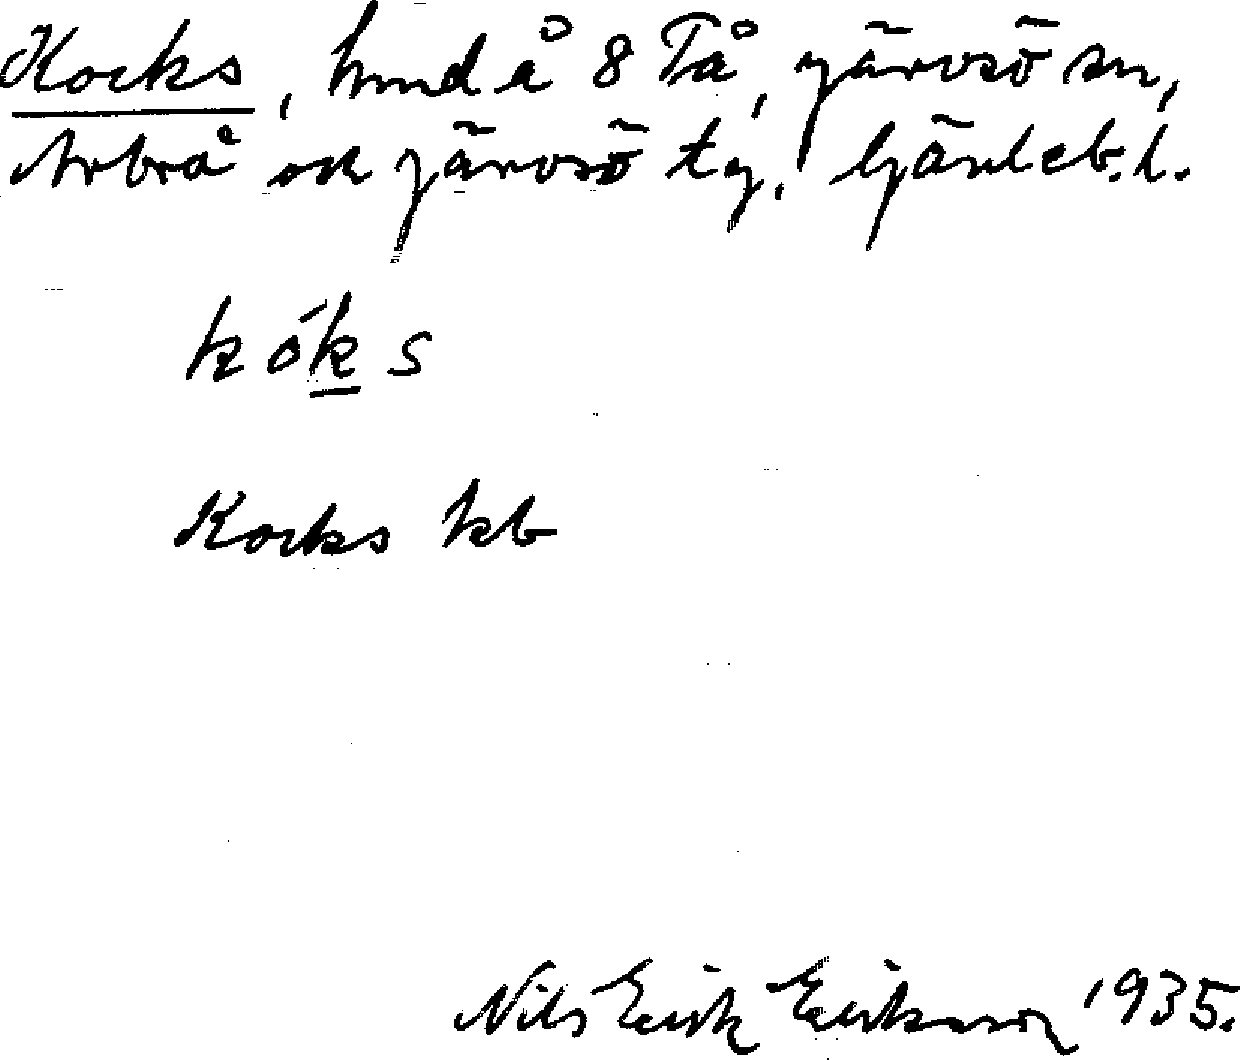 Kocks, hmd å 8 Tå, Järvsö sn,
Arbrå ok Järvsö tg, Gävleb. l.
kók̲s
Kocks kb
Nils Erik Eriksson 1935.